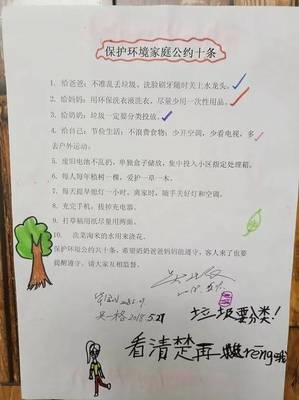 保护环境家庭公约十条
1. 给爸爸：不准乱丢垃圾。洗脸刷牙随时关上水龙头。
2. 给妈妈：用环保洗衣液洗衣，尽量少用一次性用品。
3. 给奶奶：垃圾一定要分类投放。
4. 给自己：节俭生活：不浪费食物；少开空调，少看电视，多
去户外运动。
5. 废旧电池不乱扔，单独盒子储放，集中投入小区指定处理箱。
6. 每人每年植树一棵，爱护一草一木。
7. 每天提早熄灯一小时，离家时，随手关好灯和空调。
8. 充完手机，拔掉充电器。
9. 打草稿用纸尽量用两面。
10. 洗菜淘米的水用来浇花。
保护环境公约共十条，希望奶奶爸爸妈妈遵守，客人来了也要
提醒遵守，请大家互相监督。
2018.5.27
垃圾要分类！
看清楚再 rēng